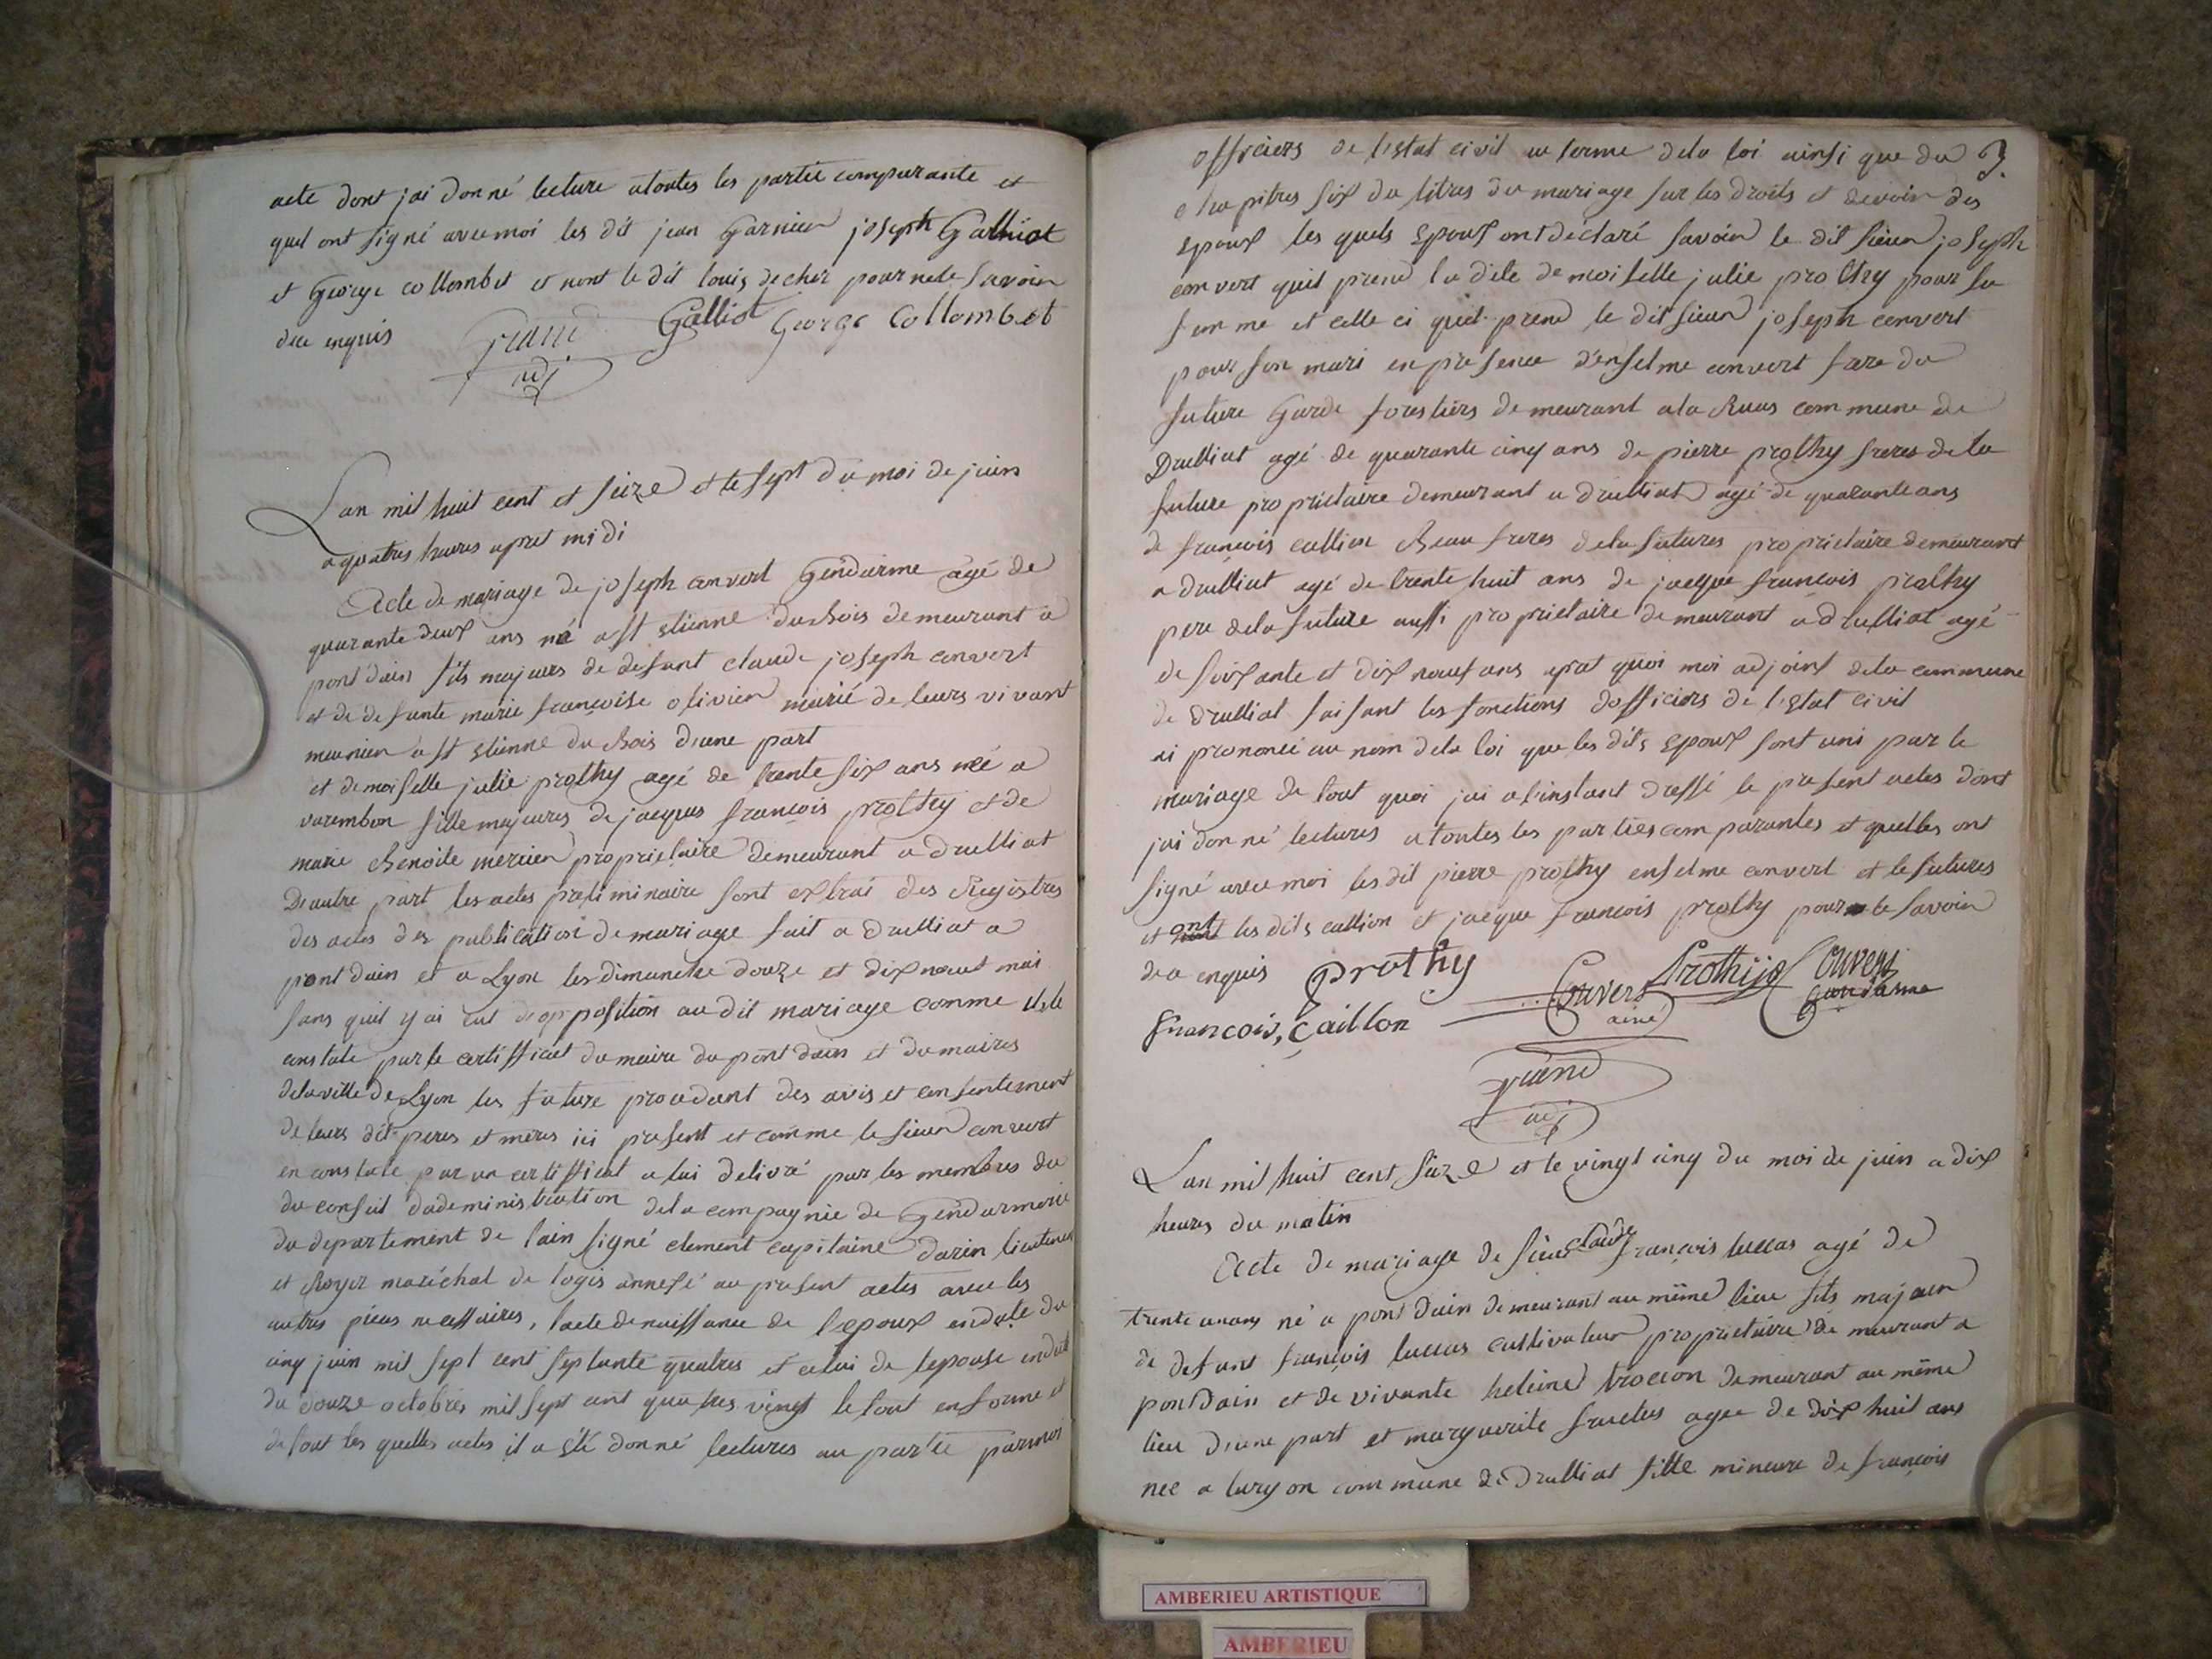 acte dont jai donné lecture atoutes les partie comparante et
quil ont signé avec moi les dit jean Garnier joseph Galliot
et George collombet et nont le dit louis decher pour ne le savoir
dece enquis Galliot George Collombet
adj
Lan mil huit cent et seize et le sept du moi de juin
a quatres heures apret midi
Acte de mariage de joseph convert Gendarme agé de
quarante deux ans né a st etienne dubois demeurant a
pont dain fils majeurs de defunt claude joseph convert
et de defunte marie françoise olivier marié de leurs vivant
meunier a st etienne du bois dune part
et demoiselle julie prothy agé de trente six ans née a
varembon fille majeures de jacques françois prothy et de
marie Benoite mercier proprietaire demeurant a druilliat
Deautre part les actes preliminaire sont extrai des Registres
des actes des publication de mariage fait a Druilliat a
pont dain et a Lyon les dimanche douze et dix neuf mai
sans quil y ai eut deopposition au dit mariage comme il le
constate par le certifficat du maire du pont dain et du maires
dela ville de Lyon les future proadant des avis et consentement
de leurs dit peres et meres ici present et comme le sieur convert
en constate par un certifficat a lui delivré par les membres du
du conseil dadeministration dela compagnie de Gendarmerie
du departement de lain signé clement capitaine darin lieutenant
et Royer maréchal de logis annexé au present actes avec les
autres pieces necessaires, lacte de naissance de lepoux en date du
cinq juin mil sept cent septante quatres et celui de lepouse en date
du douze octobres mil sept cent quatres vingt le tout en forme et
de tout les quelles actes il a été donné lectures au partie par moi
officiers de lestat civil au terme dela loi ainsi que du 3.
chapitres six du titres du mariage sur les droits et devoir des
epoux les quels epoux ont declaré savoir le dit sieur joseph
convert quil prend la dite demoiselle julie prothy pour sa
femme et celle ci quel prend le dit sieur joseph convert
pour son mari en presence d'enselme convert frere du
future Garde forestiers demeurant a la Ruas commune de
Druilliat agé de quarante cinq ans de pierre prothy freres de la
future proprietaire demeurant a druilliat agé de quarante ans
de françois callion Beau freres dela futures proprietaire demeurant
a druilliat agé de trente huit ans de jacque françois prothy
pere dela future aussi proprietaire demeurant a druilliat agé
de soixante et dix neuf ans apret quoi moi adjoint dela commune
de druilliat faisant les fonctions dofficiers de lestat civil
ai prononcé au nom dela loi que les dits epoux sont uni par le
mariage de tout quoi jai a linstant dressé le present actes dont
jai donné lectures a toutes les parties comparantes et quelles ont
signé avec moi les dit pierre prothy enselme convert et le futures
et ont les dits callion et jacque françois prothy pour le savoir
dea enquis prothy Convers Prothijo Convers
françois, Caillon ainé gendarme
adj
Lan mil huit cent seize et le vingt cinq du moi de juin a dix
heures du matin
Acte de mariage de sieur claude françois luccas agé de
trente ans né a pont dain demeurant au même lieu fils majeur
de defunt françois luccas cultivateur proprietaire demeurant a
pont Dain et de vivante heleine trocon demeurant au même
lieu dune part et marguerite fructus agee de dix huit ans
nee a turgon commune de Druilliat fille mineure de françois
AMBERIEU ARTISTIQUE
AMBERIEU